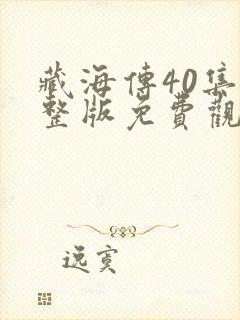 藏海傳40集
整版免費觀
逸寞